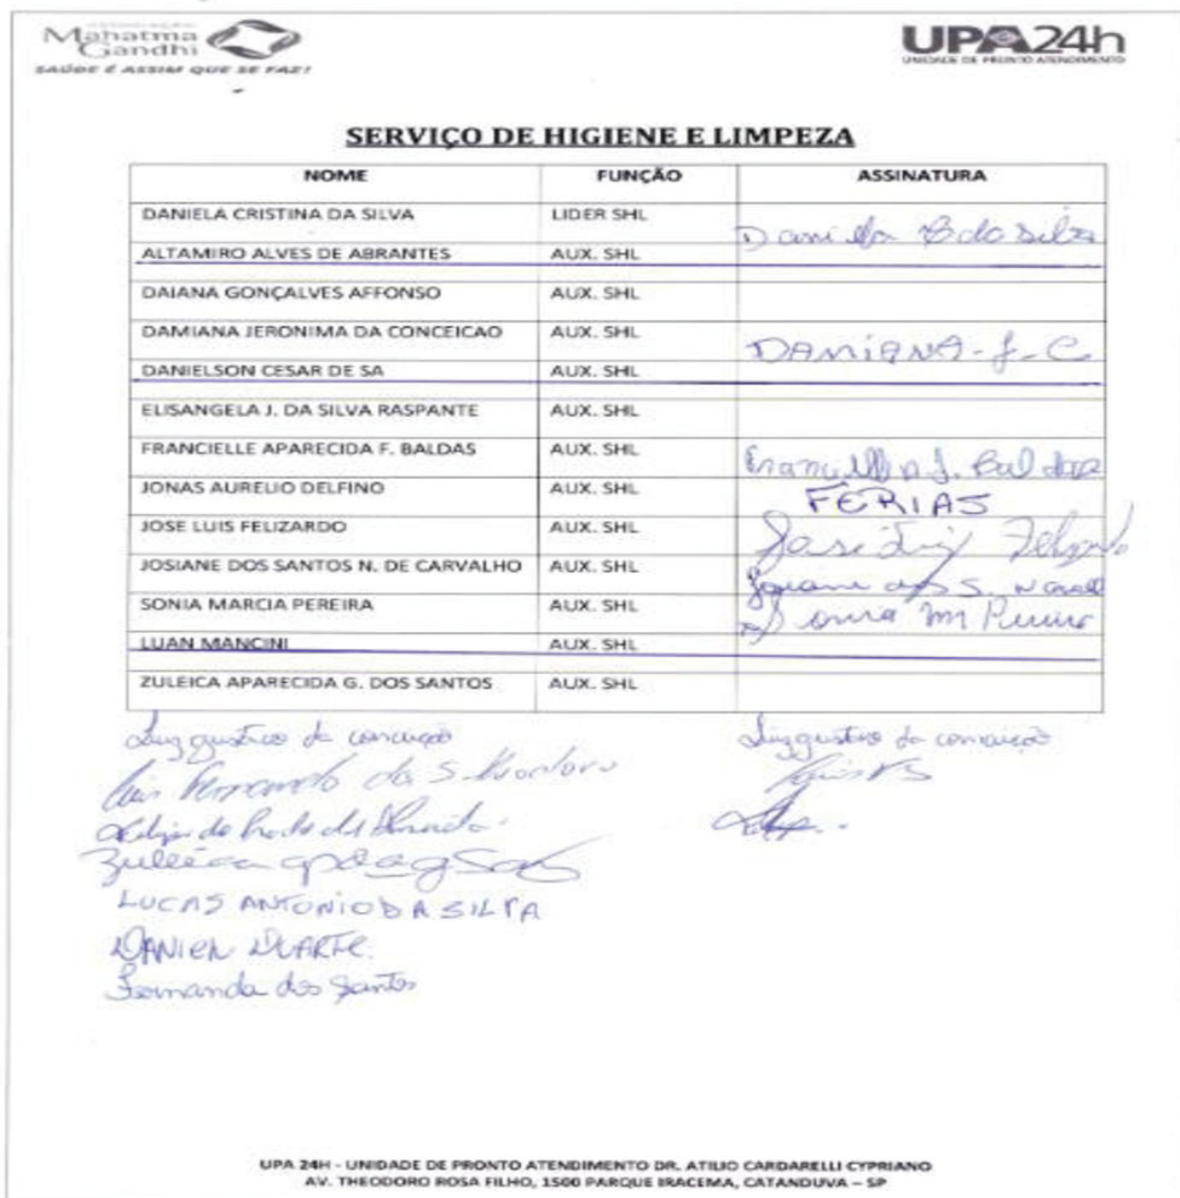 Mahatma
Gandhi
SAÚDE É ASSIM QUE SE FAZ!
UPA24h
UNIDADE DE PRONTO ATENDIMENTO
SERVIÇO DE HIGIENE E LIMPEZA
NOME FUNÇÃO ASSINATURA
DANIELA CRISTINA DA SILVA LIDER SHL Daniela C da Silva
ALTAMIRO ALVES DE ABRANTES AUX. SHL
DAIANA GONÇALVES AFFONSO AUX. SHL
DAMIANA JERONIMA DA CONCEICAO AUX. SHL DAMIANA-J-C
DANIELSON CESAR DE SA AUX. SHL
ELISANGELA J. DA SILVA RASPANTE AUX. SHL
FRANCIELLE APARECIDA F. BALDAS AUX. SHL Francielle A. F. Baldas
JONAS AURELIO DELFINO AUX. SHL FERIAS
JOSE LUIS FELIZARDO AUX. SHL José Luiz Felizardo
JOSIANE DOS SANTOS N. DE CARVALHO AUX. SHL Josiane dos S. N
SONIA MARCIA PEREIRA AUX. SHL Sonia M Pereira
LUAN MANCINI AUX. SHL
ZULEICA APARECIDA G. DOS SANTOS AUX. SHL
Luiz gustavo da conceição Luiz gustavo da conceição
Luis Fernando da S.
Zuleica
LUCAS ANTONIO DA SILVA
DANIEL DUARTE
Fernanda dos Santos
UPA 24H - UNIDADE DE PRONTO ATENDIMENTO DR. ATILIO CARDARELLI CYPRIANO
AV. THEODORO ROSA FILHO, 1500 PARQUE IRACEMA, CATANDUVA – SP